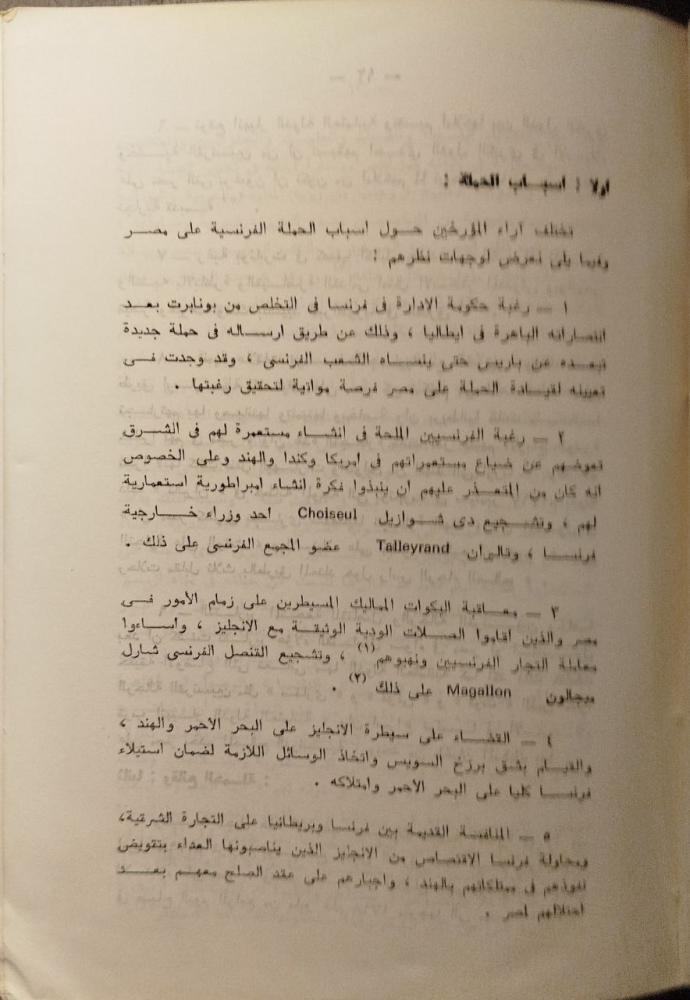 اولا : اسباب الحملة :
تختلف آراء المؤرخين حول اسباب الحملة الفرنسية على مصر
وفيما يلى نعرض لوجهات نظرهم :
١ — رغبة حكومة الادارة فى فرنسا فى التخلص من بونابرت بعد
انتصاراته الباهرة فى ايطاليا ، وذلك عن طريق ارساله فى حملة جديدة
تبعده عن باريس حتى ينساه الشعب الفرنسى ، وقد وجدت فى
تعيينه لقيادة الحملة على مصر فرصة مواتية لتحقيق رغبتها .
٢ — رغبة الفرنسيين الملحة فى انشاء مستعمرة لهم فى الشرق
تعوضهم عن ضياع مستعمراتهم فى امريكا وكندا والهند وعلى الخصوص
انه كان من المتعذر عليهم ان ينبذوا فكرة انشاء امبراطورية استعمارية
لهم ، وتشجيع دى شوازيل Choiseul احد وزراء خارجية
فرنسا ، وتاليران Talleyrand عضو المجمع الفرنسى على ذلك .
٣ — معاقبة البكوات المماليك المسيطرين على زمام الأمور فى
مصر والذين اقاموا الصلات الودية الوثيقة مع الانجليز ، واساءوا
معاملة التجار الفرنسيين ونهبوهم (١) ، وتشجيع القنصل الفرنسى شارل
ميجالون Magallon على ذلك (٢) .
٤ — القضاء على سيطرة الانجليز على البحر الاحمر والهند ،
والقيام بشق برزخ السويس واتخاذ الوسائل اللازمة لضمان استيلاء
فرنسا كليا على البحر الاحمر وامتلاكه .
٥ — المنافسة القديمة بين فرنسا وبريطانيا على التجارة الشرقية،
ومحاولة فرنسا الاقتصاص من الانجليز الذين يناصبونها العداء بتقويض
نفوذهم فى ممتلكاتهم بالهند ، واجبارهم على عقد الصلح معهم بعد
احتلالهم لمصر .